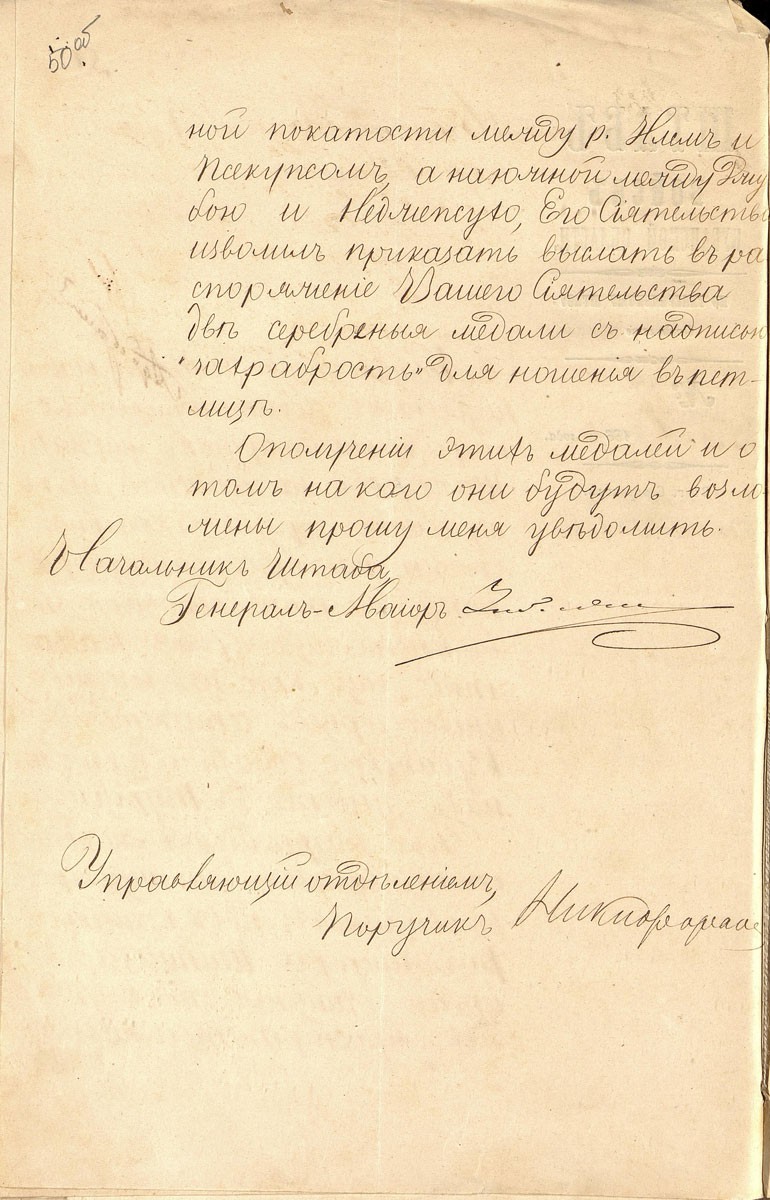 50об
ной покатости между р. Илемъ и
Псекупсомъ, а на южной между Джу
бою и Недженсухо, Его Сіятельство
изволилъ приказать выслать въ ра
споряженіе Вашего Сіятельства
двѣ серебреныя медали съ надписью
"за храбрость" для ношенія въ пет-
лицѣ.
О полученіи этихъ медалей и о
томъ на кого они будутъ возло
жены прошу меня увѣдомить.
Начальникъ Штаба,
Генералъ-Маіоръ
Управляющій отдѣленіемъ,
Поручикъ